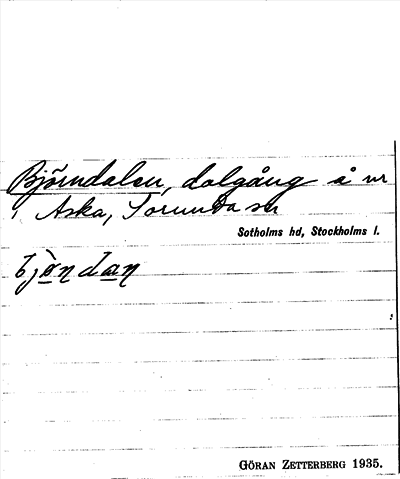 Björndalen, dalgång å nr
i Aska, Sorunda sn
Sotholms hd, Stockholms l.
bjøndan
GÖRAN ZETTERBERG 1935.